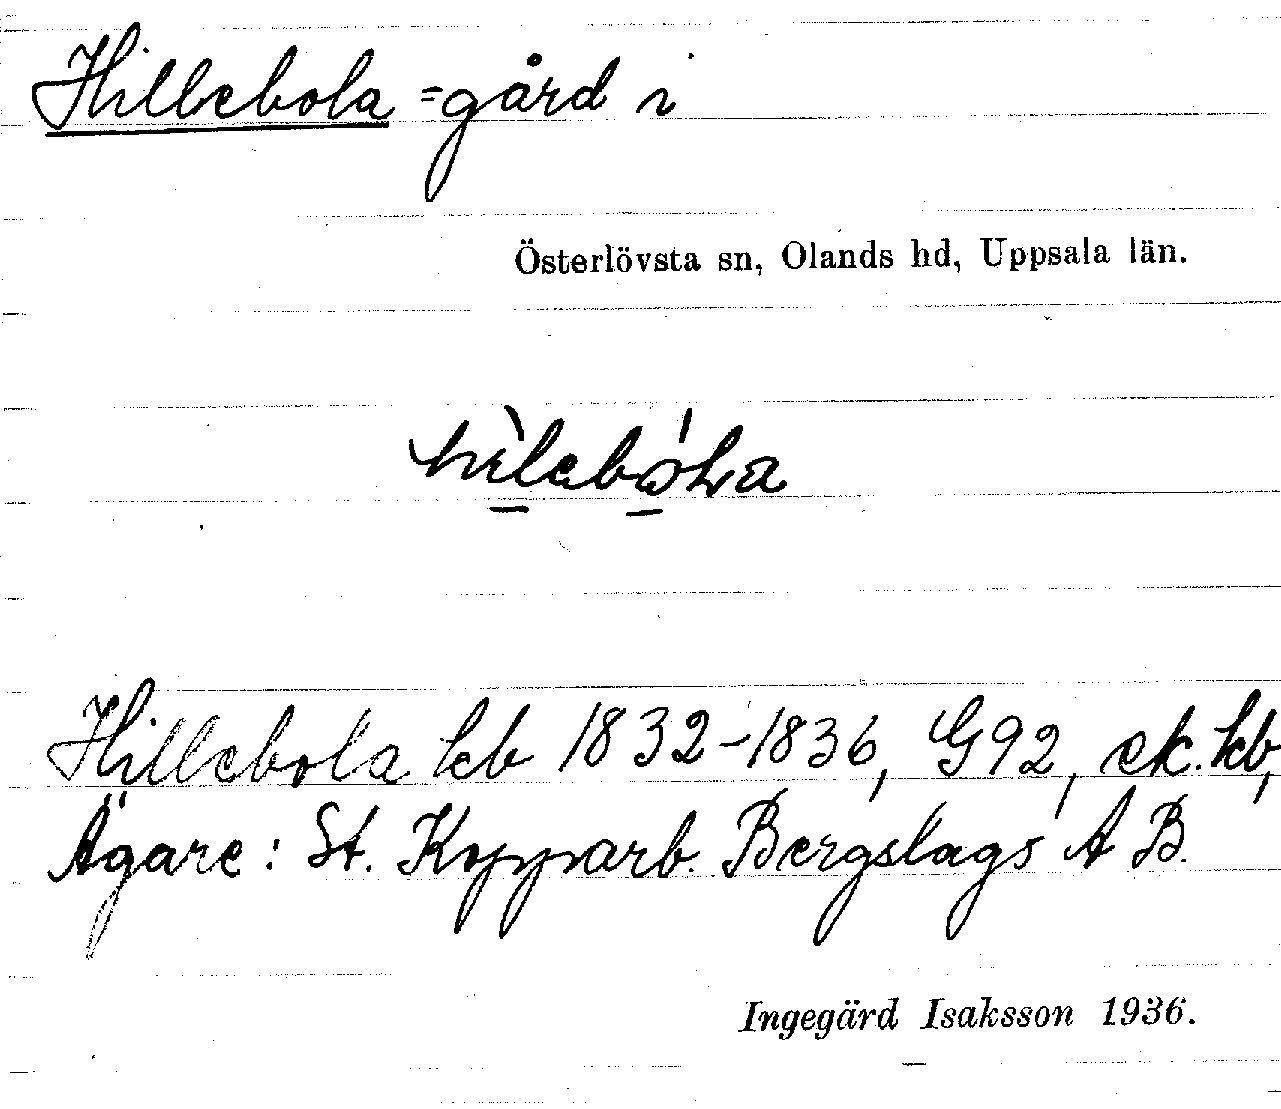 Hillebola = gård i
Österlövsta sn, Olands hd, Uppsala län.
Hillebola kb 1832-1836, G92, ek. kb,
Ägare: St. Kopparb. Bergslags A B.
Ingegärd Isaksson 1936.